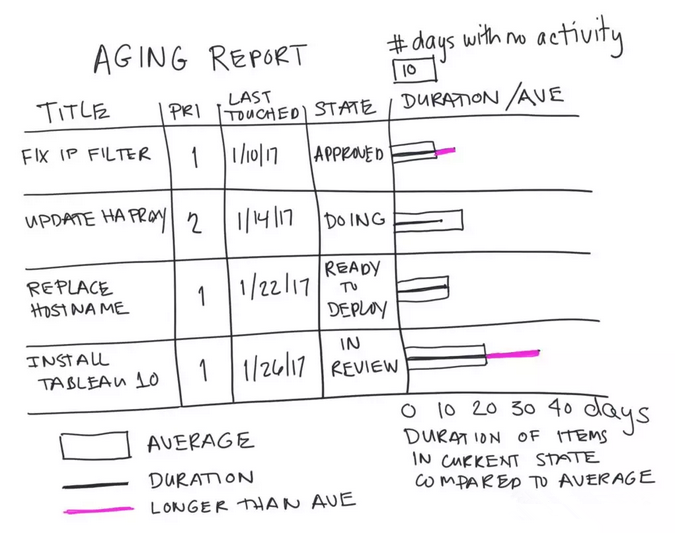 AGING REPORT
# days with no activity
10
TITLE PRI LAST TOUCHED STATE DURATION / AVE
FIX IP FILTER 1 1/10/17 APPROVED
UPDATE HA PROXY 2 1/14/17 DOING
REPLACE HOSTNAME 1 1/22/17 READY TO DEPLOY
INSTALL TABLEAU 10 1 1/26/17 IN REVIEW
0 10 20 30 40 days
DURATION OF ITEMS
IN CURRENT STATE
COMPARED TO AVERAGE
AVERAGE
DURATION
LONGER THAN AVE